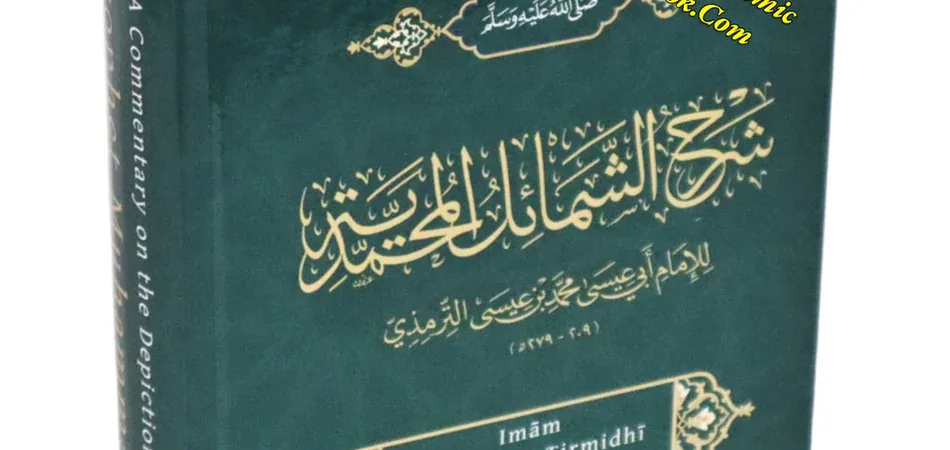 صَلَّى اللّٰهُ عَلَيْهِ وَسَلَّمَ
k.Com
شَرْحُ الشَّمَائِلِ المُحَمَّدِيَّةِ
لِلإِمَامِ أَبِي عِيسَى مُحَمَّد بْنِ عِيسَى التِّرْمِذِيّ
(٢٠٩ - ٢٧٩ ه)
Imām
Tirmidhī
A Commentary on the Depiction